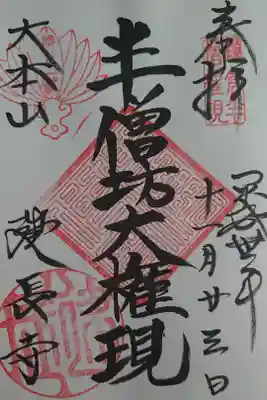 奉拝
平成卅年
十一月廿三日
半僧坊大權現
大本山
建長寺